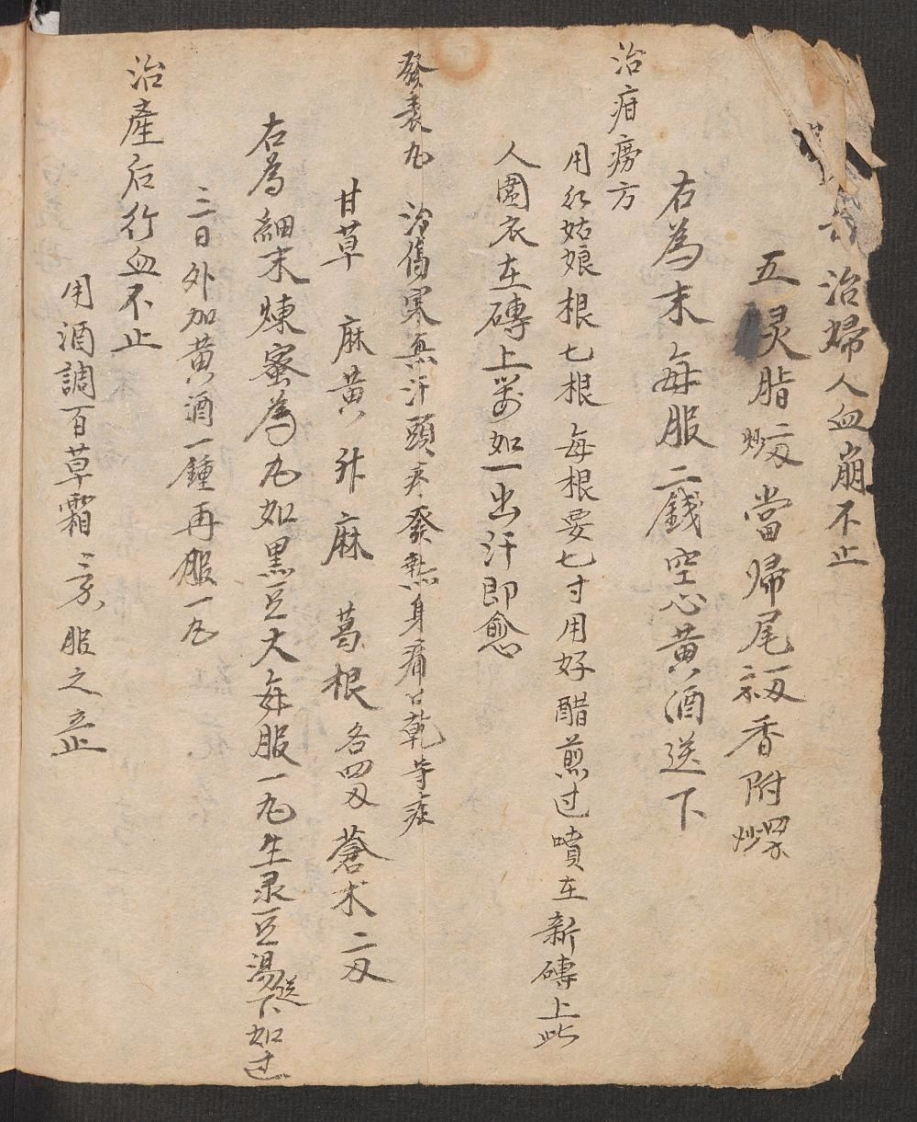 治婦人血崩不止
五灵脂 炒 二刄 當歸尾 一刄 香附 炒 四朩
右為末每服二錢空心黃酒送下
治疳痨方
用红姑娘根七根每根要七寸用好醋煎过噴在新磚上此
人圍衣在磚上 如一出汗即愈
發表丸 治傷寒無汗頭疼發熱身痛口乾等症
甘草 麻黃 升麻 葛根 各四刄 蒼术二刄
右為細末煉蜜為丸如黑豆大每服一丸生录豆湯送下如过
三日外加黃酒一鍾再服一丸
治產后行血不止
用酒調百草霜 服之立止